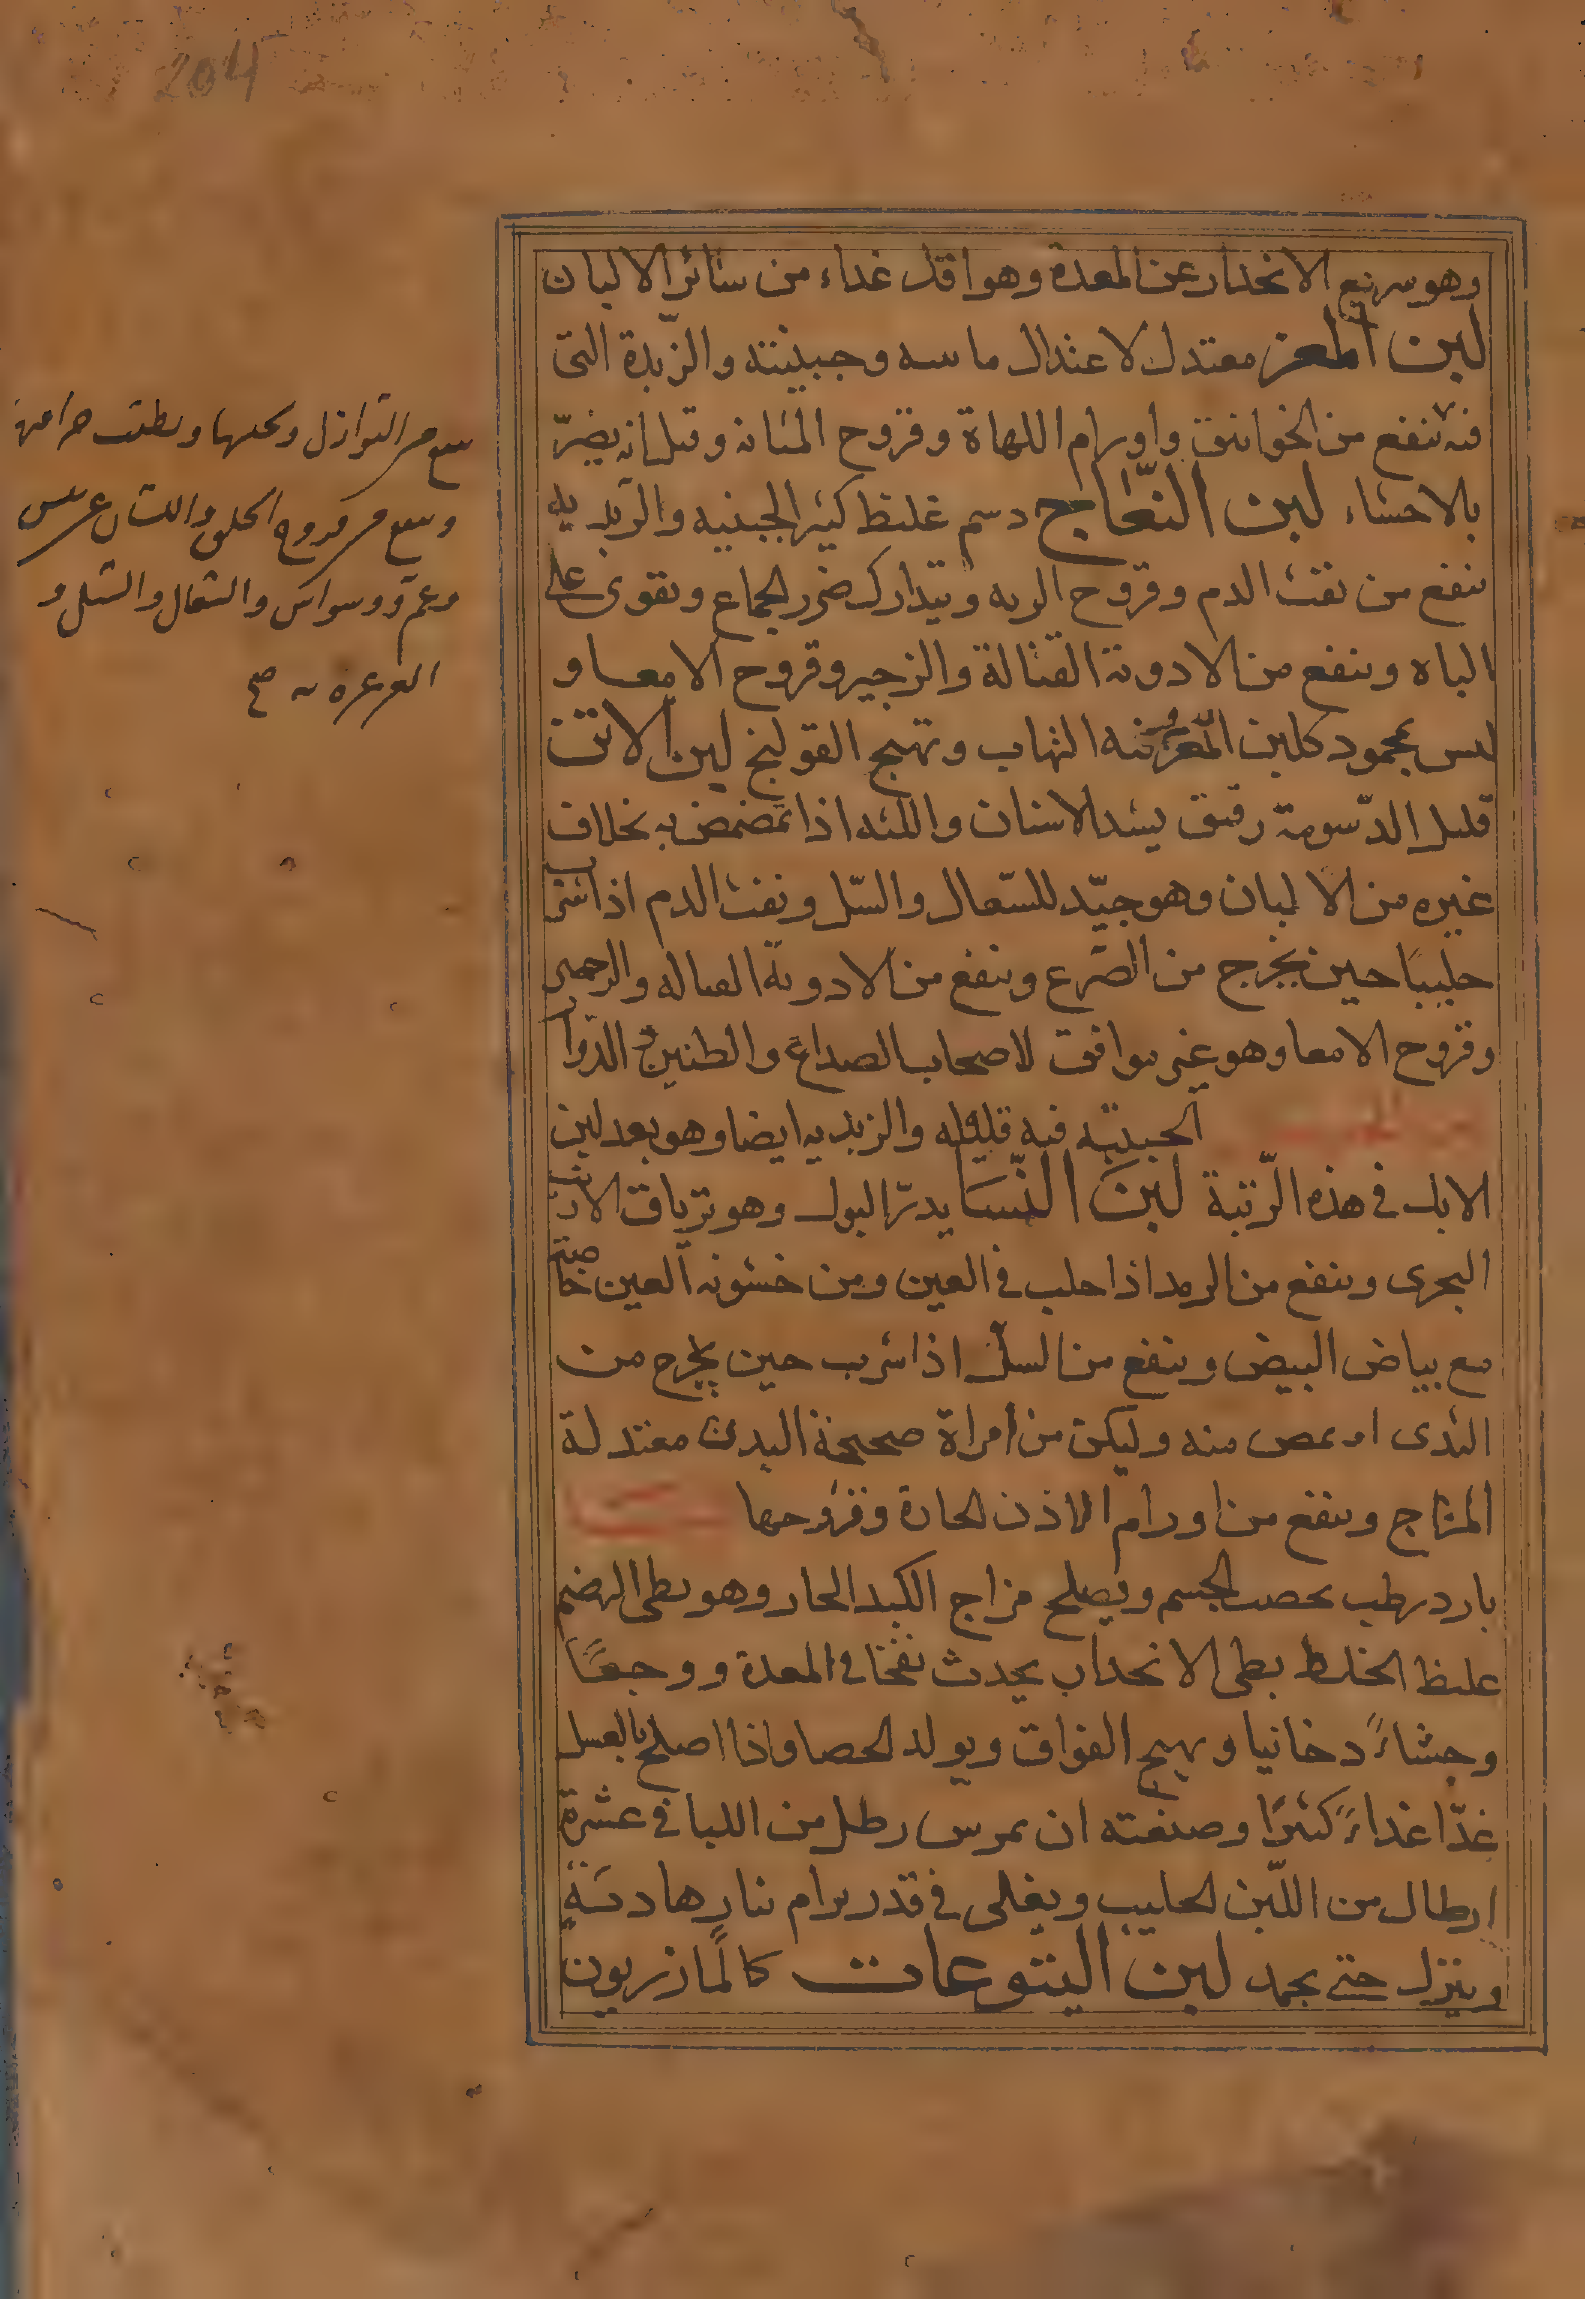 204
وهو سريع الانحدار عن المعدة وهو اقل غداء من سائر الالبان
لبن المعز معتدل لاعتدال ماسه وجبينته والزبدة التى
فيه ينفع من الخوانيق واورام اللهاة وقروح المثانه وقيل انه يضرّ
بالاحشاء لبن النعاج دسم غليظ كثير الجبنيه والزبديه
ينفع من نفث الدم وقروح الريه ويتدارك ضرر الجماع ويقوى على
الباه وينفع من الادوية القتالة والزجير وقروح الامعا و
ليس بمحمود كلبن المعز وفيه التهاب وتهيج القولنج لبن الاتن
قليل الدّسومة رقيق يشد الاسنان واللثه اذا تمضمض به بخلاف
غيره من الالبان وهو جيّد للسّعال والسّل ونفث الدم اذا شرب
حليبًا حين يخرج من الضرع وينفع من الادوية القتاله والزحير
وقروح الامعا وهو غير موافق لاصحاب الصداع والطنين و الدّوار
الجبنيّه فيه قليله والزبديه ايضا وهو بعد لبن
الابل فى هذه الرّتبة لبن النّسا يدرّ البول وهو ترياق الارنب
البحرى وينفع من الرمد اذا حلب فى العين ومن خشونه العين خاصّة
مع بياض البيض وينفع من السل اذا شرب حين يخرج من
الثدى او يمص منه وليكن من امراة صحيحة البدن معتدلة
المزاج وينفع من اورام الاذن الحارة وقروحها
بارد رطب يخصب الجسم ويصلح مزاج الكبد الحار وهو بطى الهضم
غليظ الخلط بطى الانحدار يحدث نفخا فى المعدة ووجعًا
وجشاءً دخانيا ويهيج الفواق ويولد الحصا واذا اصلح بالعسل
غذّا غداءً كثيرًا وصنعته ان يمرس رطل من اللبا فى عشرة
ارطال من اللّبن الحليب ويغلى فى قدر برام بنار هادئة
وينزل حتى يجمد لبن اليتوعات كالمازريون
ينفع من النوازل
وينفع من قروح الحلق
وغم ووسواس والسّعال والسّل و
الغرغره به صح